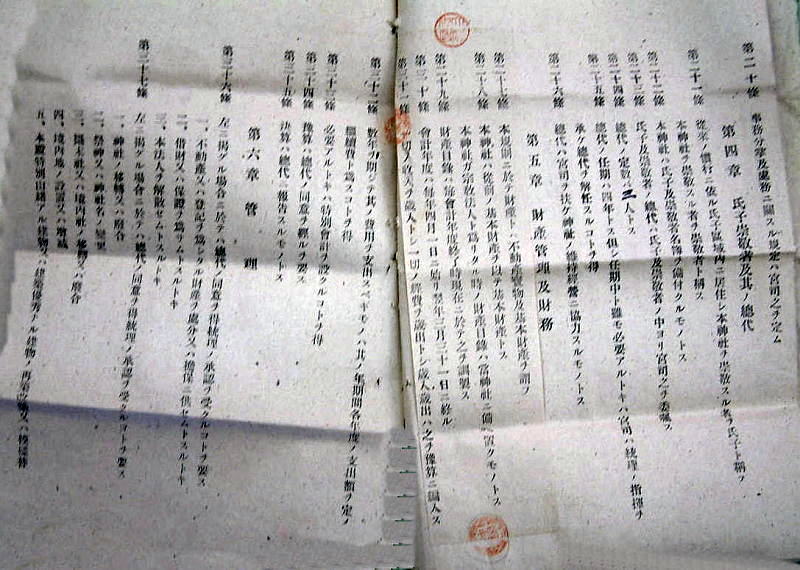 第二十條 事務分掌及處務ニ關スル規定ハ宮司之ヲ定ム
第四章 氏子崇敬者及其ノ總代
第二十一條 從來ノ慣行ニ依ル氏子區域內ニ居住シ本神社ヲ崇敬スル者ヲ氏子ト稱フ
本神社ヲ崇敬スル者ヲ崇敬者ト稱ス
第二十二條 本神社ハ氏子及崇敬者名簿ヲ備付クルモノトス
第二十三條 氏子及崇敬者ノ總代ハ氏子及崇敬者ノ中ヨリ宮司之ヲ委囑ス
第二十四條 總代ノ定數ハ三人トス
第二十五條 總代ノ任期ハ四年トス但シ任期中ト雖モ必要アルトキハ宮司ハ統理ノ指揮ヲ
承ケ總代ヲ解任スルコトヲ得
第二十六條 總代ハ宮司ヲ扶ケ神社ノ維持經營ニ協力スルモノトス
第五章 財產管理及財務
第二十七條 本規則ニ於テ財產トハ不動產寶物及基本財產ヲ謂フ
第二十八條 本神社ハ從前ノ基本財產ヲ以テ基本財產トス
本神社ガ宗敎法人ト爲リタル時ノ財產目錄ハ當神社ニ備ヘ置クモノトス
第二十九條 財產目錄ハ每會計年度終了時現在ニ於テ之ヲ調製ス
第三十條 會計年度ハ每年四月一日ニ始リ翌年三月三十一日ニ終ル
第三十一條 一切ノ收入ヲ歲入トシ一切ノ經費ヲ歲出トシ歲入歲出ハ之ヲ豫算ニ編入ス
第三十二條 數年ヲ期シテ其ノ費用ヲ支出スベキモノハ其ノ年期間各年度ノ支出額ヲ定メ
繼續費ト爲スコトヲ得
第三十三條 必要アルトキハ特別會計ヲ設クルコトヲ得
第三十四條 豫算ハ總代ノ同意ヲ經ルヲ要ス
第三十五條 決算ハ總代ニ報告スルモノトス
第六章 管理
第三十六條 左ニ揭グル場合ニ於テハ總代ノ同意ヲ得統理ノ承認ヲ受クルコトヲ要ス
一、不動產又ハ登記ヲ爲シタル財產ヲ處分又ハ擔保ニ供セムトスルトキ
二、借財又ハ保證ヲ爲サムトスルトキ
三、本法人ヲ解散セムトスルトキ
第三十七條 左ニ揭グル場合ニ於テハ總代ノ同意ヲ得統理ノ承認ヲ受クルコトヲ要ス
一、神社ノ移轉又ハ廢合
二、祭神又ハ神社名ノ變更
三、攝末社又ハ境內社ノ移轉又ハ廢合
四、境內地ノ設置又ハ增減
五、本殿特別由緖アル建物又ハ建築優秀アル建物ノ